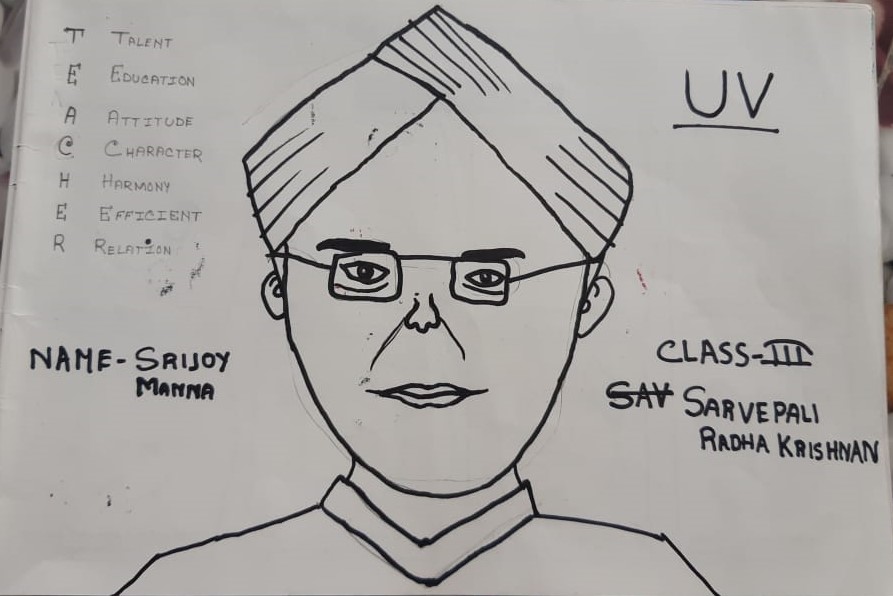 T TALENT
E EDUCATION
A ATTITUDE
C CHARACTER
H HARMONY
E EFFICIENT
R RELATION
UV
NAME- SRIJOY
MANNA
CLASS-III
SAV SARVEPALI
RADHA KRISHNAN